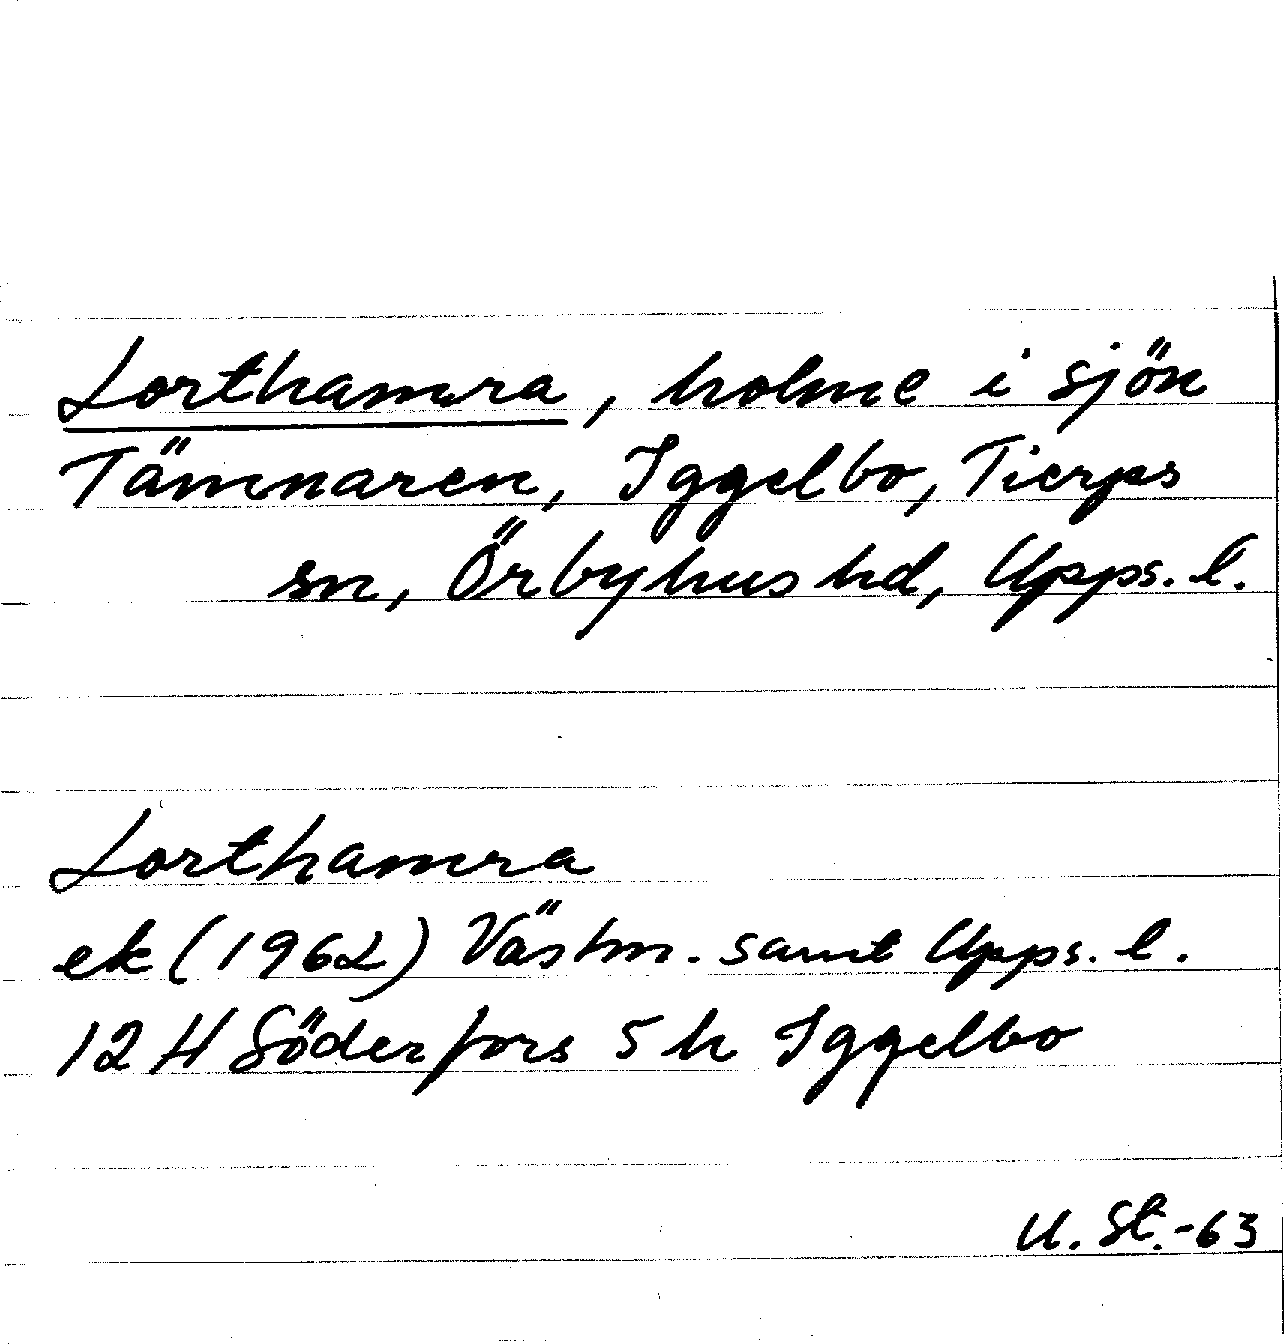 Lorthamra, holme i sjön
Tämnaren, Iggelbo, Tierps
sn, Örbyhus hd, Upps. l.
Lorthamra
ek (1962) Västm. samt Upps. l.
12 H Söderfors 5 h Iggelbo
U. St. -63